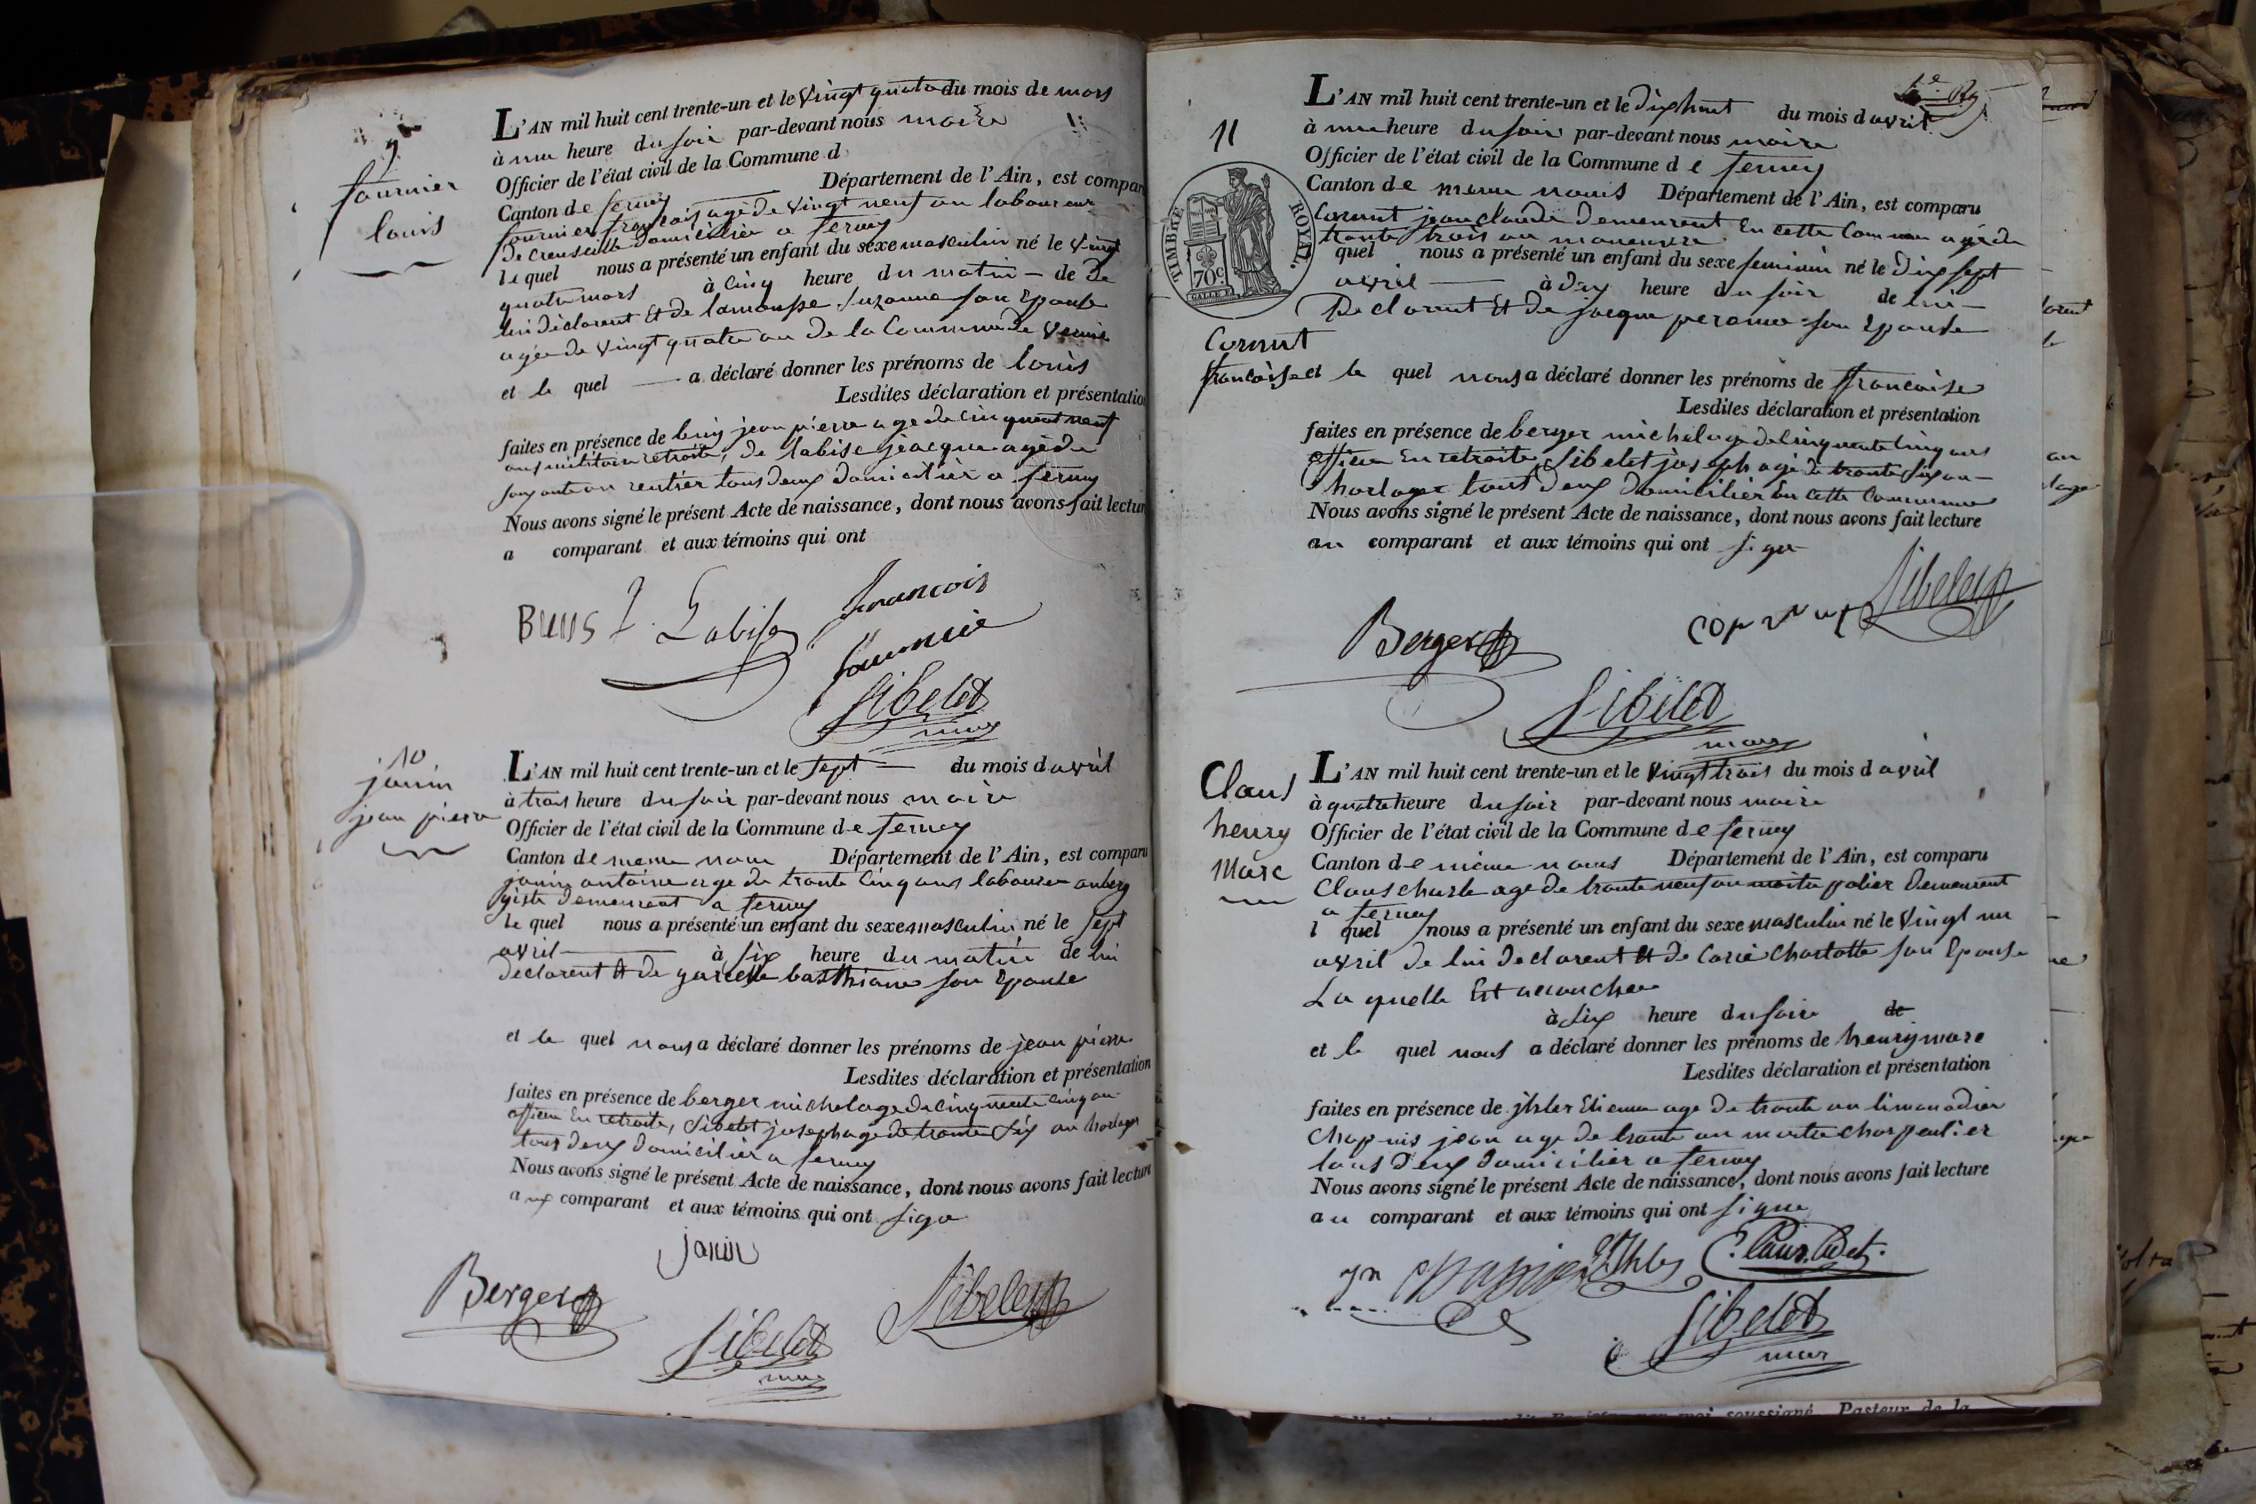 9
fournier
louis
L'AN mil huit cent trente-un et le vingt quatre du mois de mars
à une heure du soir par-devant nous maire
Officier de l'état civil de la Commune d
Canton de ferney Département de l'Ain, est compar
fournier françois agè de vingt neuf an laboureur
de domicilier a ferney
le quel nous a présenté un enfant du sexe masculin né le vingt
quatre mars à cinq heure du matin de
lui dèclarent et de lamousse suzanne son Epouse
agée de vingt quatre an de la Commune de
et le quel a déclaré donner les prénoms de louis
Lesdites déclaration et présentation
faites en présence de jean pierre age de cinquent neuf
ans militaire retraité, de labise jeacque agè de
an rentier tous deux domicilièr a ferney
Nous avons signé le présent Acte de naissance, dont nous avons fait lectur
a comparant et aux témoins qui ont
Labise
francois
fournie
Sibelet
maire
10
janin
jean pierre
L'AN mil huit cent trente-un et le sept du mois d avril
à trois heure du soir par-devant nous maire
Officier de l'état civil de la Commune de ferney
Canton de meme nom Département de l'Ain, est comparu
janin antoine age de trente cinq ans laboure auberg
giste demeurent a ferney
le quel nous a présenté un enfant du sexe masculin né le sept
avril à six heure du matin de lui
declarent et de son Epouse
et le quel nous a déclaré donner les prénoms de jean pierre
Lesdites déclaration et présentation
faites en présence de berger michel age de cinquente cinq an
officier En retraite, Sibelet joseph age de trente six an horloger
tous deux domicilièr a ferney
Nous avons signé le présent Acte de naissance, dont nous avons fait lecture
aux comparant et aux témoins qui ont signe
janin
Berger
Sibelet
Sibelet
maire
11
TIMBRE ROYAL.
70c
Cornut
francoise
L'AN mil huit cent trente-un et le dix huit du mois d avril
à une heure du soir par-devant nous maire
Officier de l'état civil de la Commune d e ferney
Canton de meme nom Département de l'Ain, est comparu
Cornut jean claude demeurent En cette Commune agè de
trente trois an manoeuvre
quel nous a présenté un enfant du sexe feminin né le dix sept
avril à dix heure du soir de lui
Declarent Et de jacque son Epouse
et le quel nous a déclaré donner les prénoms de francoise
Lesdites déclaration et présentation
faites en présence de berger michel age de cinquente cinq ans
officier En retraite, Sibelet joseph agè de trente six an
horloger tout deux domicilièr En cette Commune
Nous avons signé le présent Acte de naissance, dont nous avons fait lecture
au comparant et aux témoins qui ont signe
Sibelet
Berger
Sibelet
maire
Claus
henry
marc
L'AN mil huit cent trente-un et le vingt trois du mois d avril
à quatre heure du soir par-devant nous maire
Officier de l'état civil de la Commune de ferney
Canton de même nom Département de l'Ain, est comparu
Claus charle age de trente neuf an maitre potier demeurent
a ferney
l quel nous a présenté un enfant du sexe masculin né le vingt un
avril de lui declarent et de charlotte son Epouse
La quelle Est accouchee
à six heure du soir de
et le quel nous a déclaré donner les prénoms de henry marc
Lesdites déclaration et présentation
faites en présence de Etienne age de trente an limonadier
Chapuis jean age de trente an maitre charpentier
tous deux domicilier a ferney
Nous avons signé le présent Acte de naissance, dont nous avons fait lecture
au comparant et aux témoins qui ont signe
C. Claus Cadet.
Sibelet
maire
soussigné, Pasteur de la